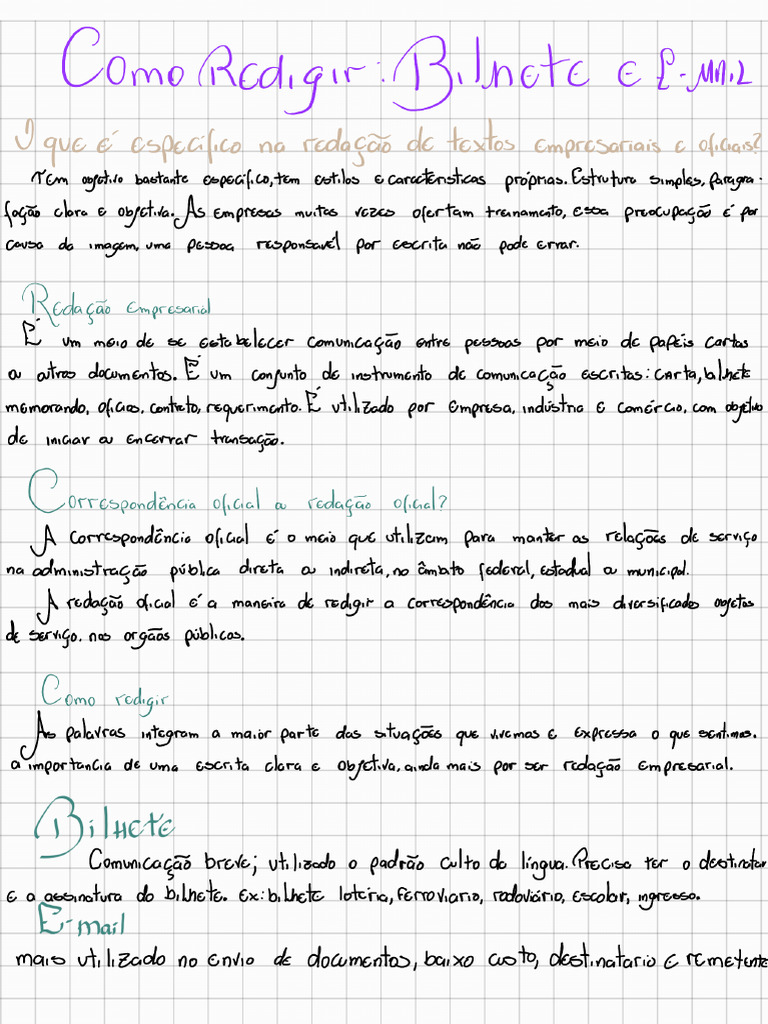 Como Redigir: Bilhete e E-mail
O que é específico na redação de textos empresariais e oficiais?
Tem objetivo bastante específico, tem estilos e características próprias. Estrutura simples, paragra-
fação clara e objetiva. As empresas muitas vezes ofertam treinamento, essa preocupação é por
causa da imagem, uma pessoa responsavel por escrita não pode errar.
Redação empresarial
É um meio de se estabelecer comunicação entre pessoas por meio de papéis cartas
ou outros documentos. É um conjunto de instrumento de comunicação escritas: carta, bilhete
memorando, oficios, contrato, requerimento. É utilizado por empresa, indústria e comércio, com objetivo
de iniciar ou encerrar transação.
Correspondência oficial ou redação oficial?
A correspondência oficial é o meio que utilizam para manter as relações de serviço
na administração pública direta ou indireta, no âmbito federal, estadual ou municipal.
A redação oficial é a maneira de redigir a correspondência dos mais diversificados objetos
de serviço, nos orgãos públicos.
Como redigir
As palavras integram a maior parte das situações que vivemos e expressa o que sentimos.
a importancia de uma escrita clara e objetiva, ainda mais por ser redação empresarial.
Bilhete
Comunicação breve; utilizado o padrão culto da língua. Precisa ter o destinatar
e a assinatura do bilhete. Ex: bilhete loteria, ferroviario, rodoviário, escolar, ingresso.
E-mail
mais utilizado no envio de documentos, baixo custo, destinatario e remetente